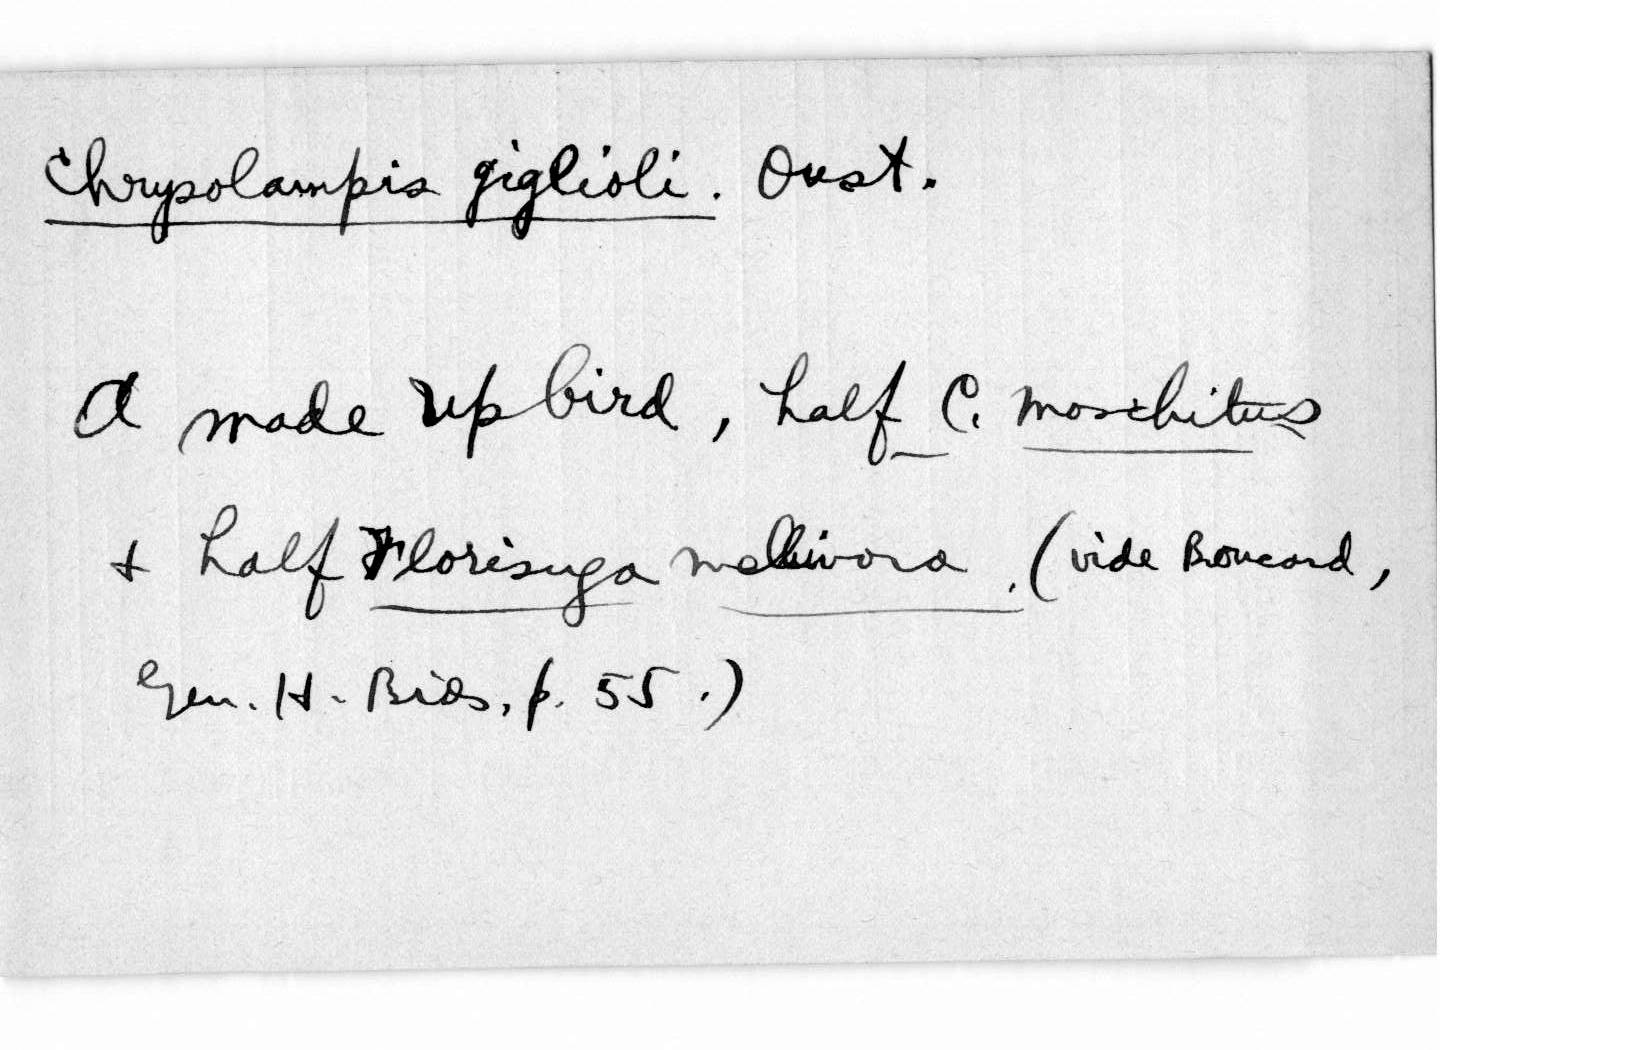 Chrysolampis giglioli. Oust.
A made up bird, half C. moschitus
+ half Florisuga mellivora. (vide Boucard,
Gen. H. Birds, p. 55.)